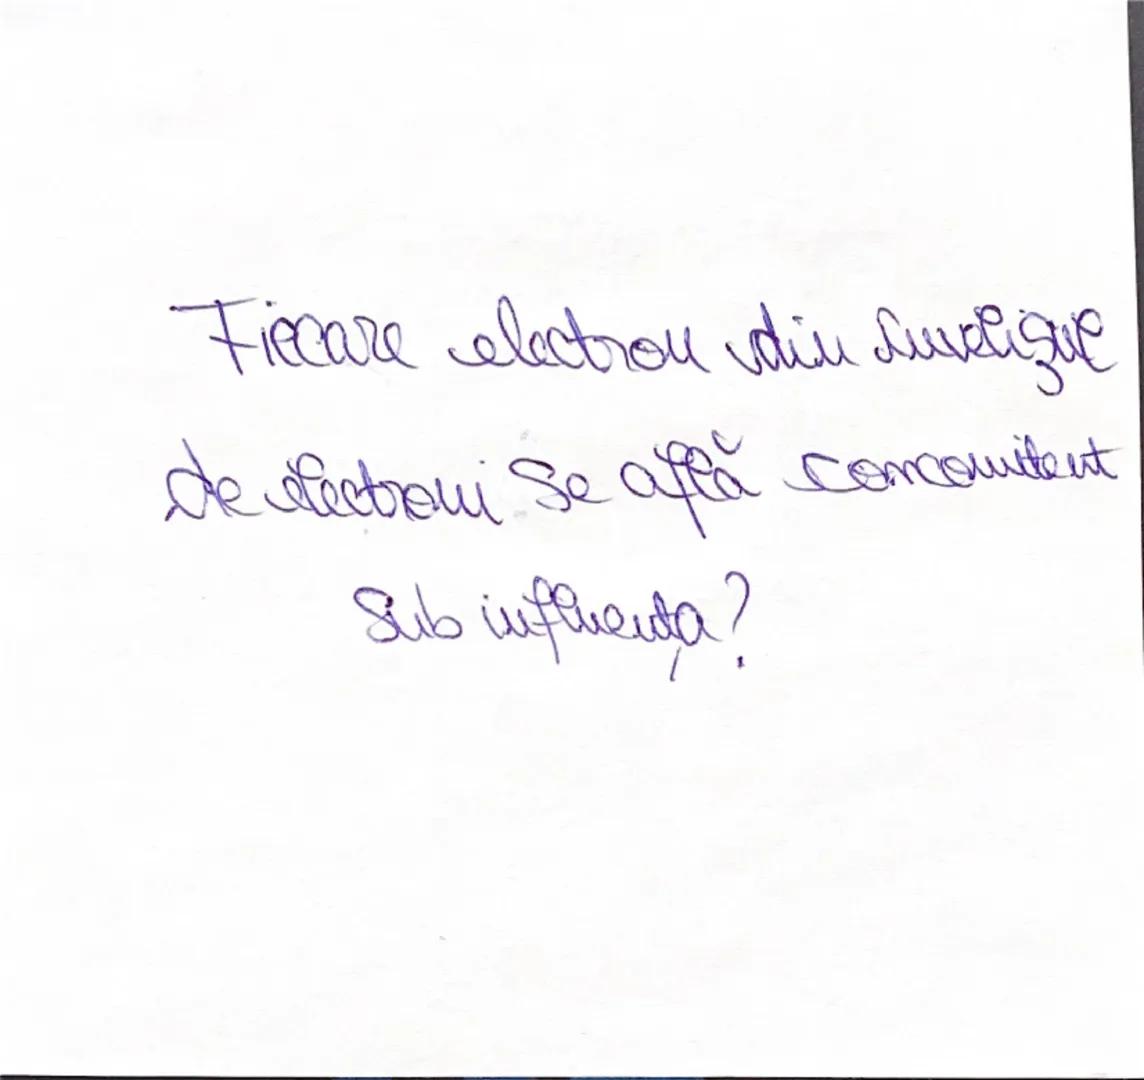 Fiecare electron din învelișul
de electroni se află concomitent
sub influența?